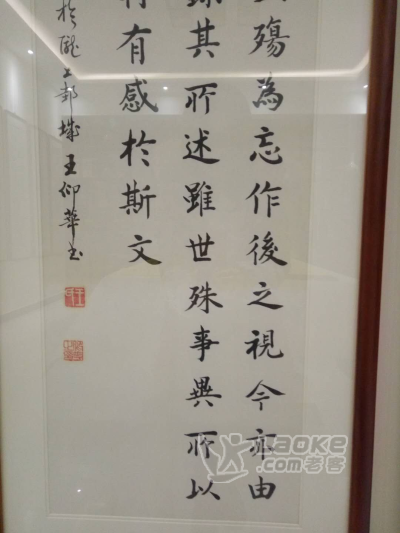 殤為忘作後之視今亦由
錄其所述雖世殊事異所以
有感於斯文
於隴上邽城王仰華书
Laoke
.com老客